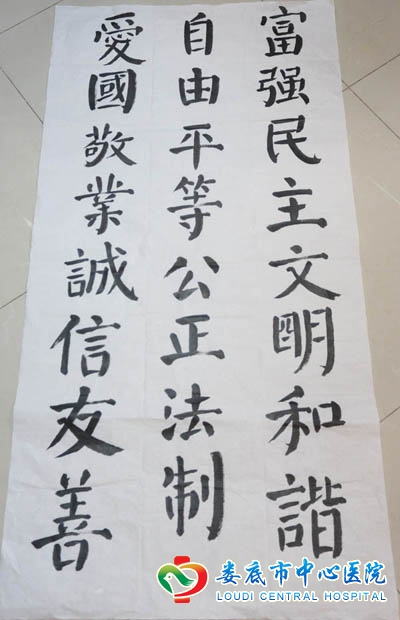 富强民主文明和諧
自由平等公正法制
愛國敬業誠信友善
娄底市中心医院
LOUDI CENTRAL HOSPITAL